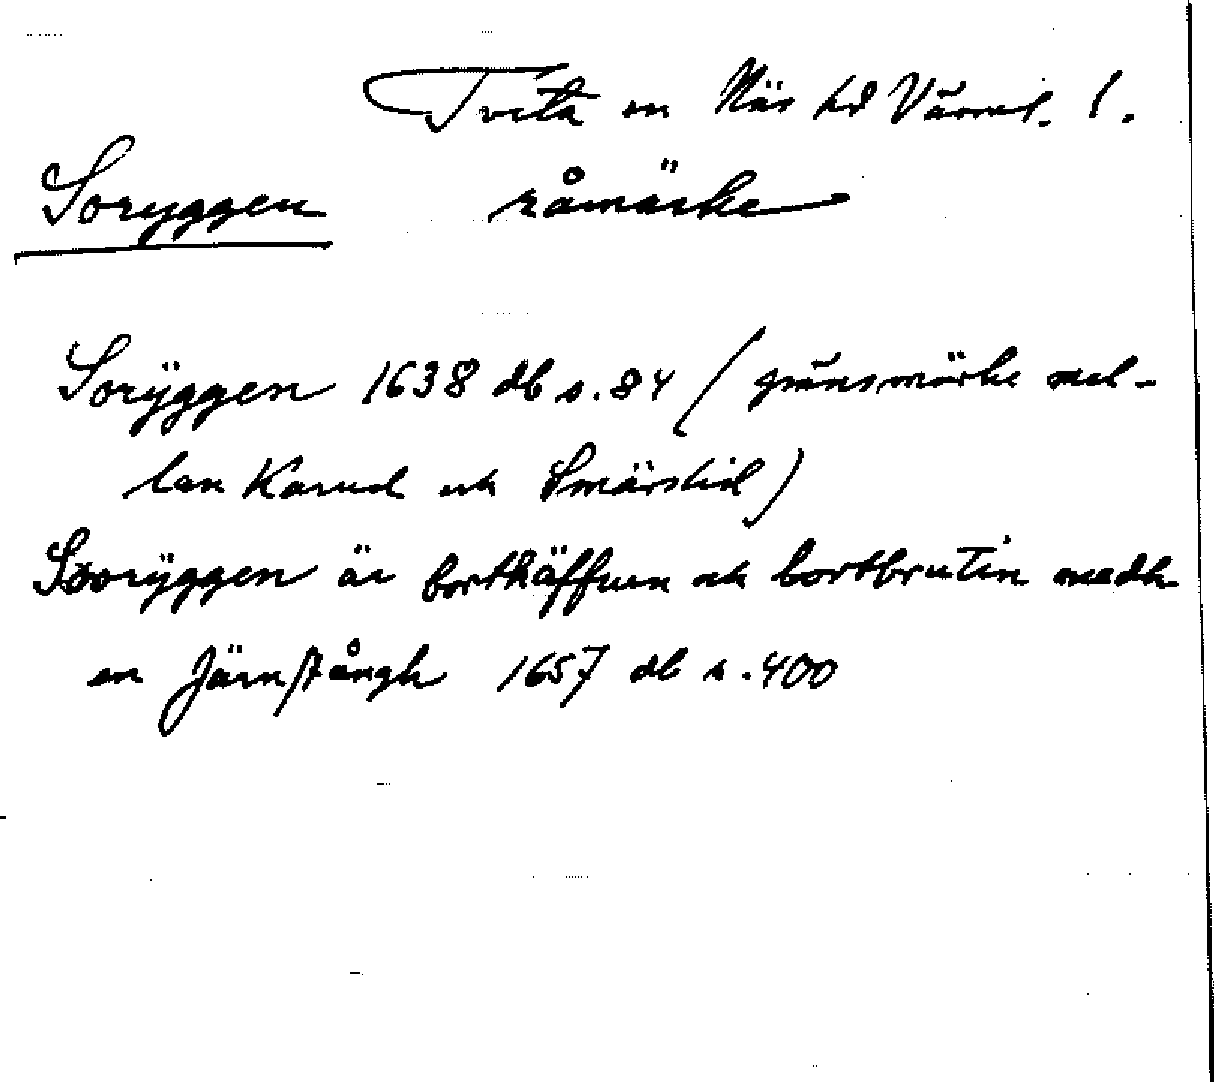 Tveta sn Näs hd Värml. l.
Soryggen råmärke
Sorÿggen 1638 db s. 84 (gränsmärke mel-
lan Karud och Smårstid)
Sooryggen är borthäffuen och bortbrutin medh
en Järnstångh 1657 db s. 400